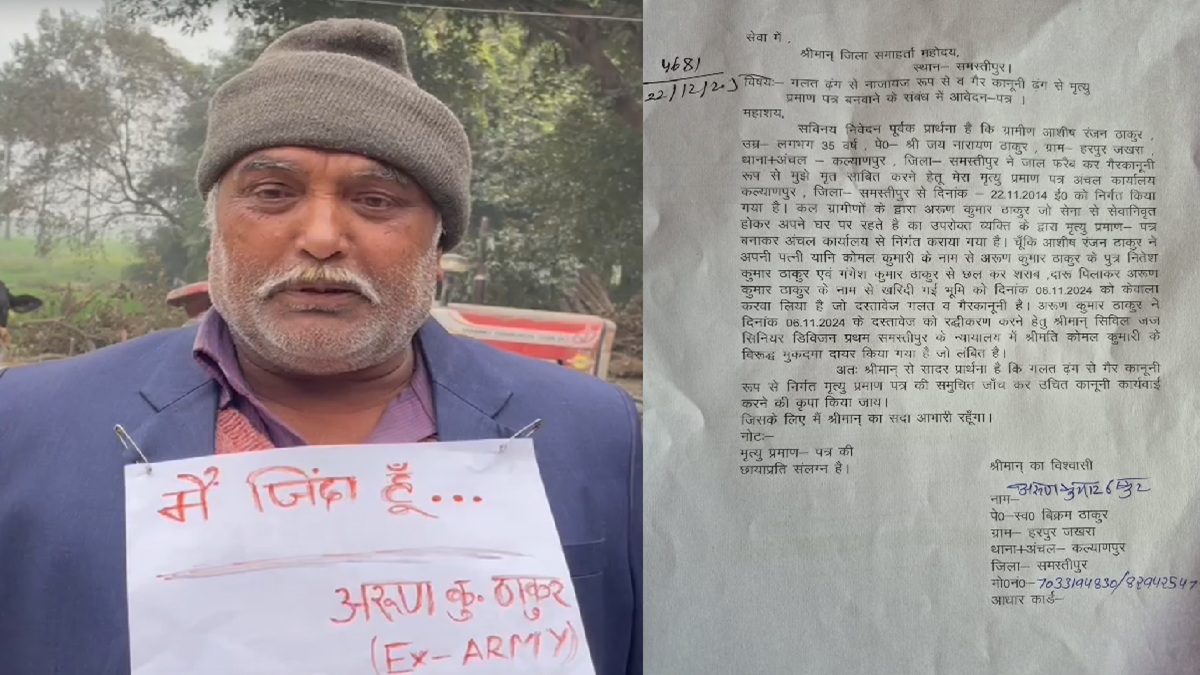 मैं जिंदा हूँ...
अरूण कु. ठाकुर
(Ex-ARMY)
सेवा में,
श्रीमान् जिला समाहर्ता महोदय,
स्थान– समस्तीपुर।
4681
22/12/205
विषयः– गलत ढ़ंग से नाजायज रूप से व गैर कानूनी ढ़ंग से मृत्यु
प्रमाण पत्र बनवाने के संबंध में आवेदन–पत्र ।
महाशय,
सविनय निवेदन पूर्वक प्रार्थना है कि ग्रामीण आशीष रंजन ठाकुर ,
उम्र– लगभग 35 वर्ष , पे०– श्री जय नारायण ठाकुर , ग्राम– हरपुर जखरा ,
थाना+अंचल – कल्याणपुर , जिला– समस्तीपुर ने जाल फरैब कर गैरकानूनी
रूप से मुझे मृत साबित करने हेतू मेरा मृत्यु प्रमाण पत्र अंचल कार्यालय
कल्याणपुर , जिला– समस्तीपुर से दिनांक – 22.11.2014 ई0 को निर्गत किया
गया है। कल ग्रामीणों के द्वारा अरूण कुमार ठाकुर जो सेना से सेवानिवृत
होकर अपने घर पर रहते है का उपरोक्त व्यक्ति के द्वारा मृत्यु प्रमाण– पत्र
बनाकर अंचल कार्यालय से निर्गत कराया गया है। चूँकि आशीष रंजन ठाकुर ने
अपनी पत्नी यानि कोमल कुमारी के नाम से अरूण कुमार ठाकुर के पुत्र नितेश
कुमार ठाकुर एवं गंगेश कुमार ठाकुर से छल कर शराब ,दारू पिलाकर अरूण
कुमार ठाकुर के नाम से खरिदी गई भूमि को दिनांक 06.11.2024 को केवाला
करवा लिया है जो दस्तावेज गलत व गैरकानूनी है। अरूण कुमार ठाकुर ने
दिनांक 06.11.2024 के दस्तावेज को रद्धीकरण करने हेतु श्रीमान् सिविल जज
सिनियर डिविजन प्रथम समस्तीपुर के न्यायालय में श्रीमति कोमल कुमारी के
विरूद्ध मुकदमा दायर किया गया है जो लंबित है।
अतः श्रीमान् से सादर प्रार्थना है कि गलत ढ़िंग से गैर कानूनी
रूप से निर्गत मृत्यु प्रमाण पत्र की समुचित जाँच कर उचित कानूनी कार्यवाई
करने की कृपा किया जाय।
जिसके लिए मैं श्रीमान् का सदा आभारी रहूँगा।
नोटः–
मृत्यु प्रमाण– पत्र की
छायाप्रति संलग्न है।
श्रीमान् का विश्वासी
अरूण कुमार ठाकुर
नाम–
पे0–स्व0 बिक्रम ठाकुर
ग्राम– हरपुर जखरा
थाना+अंचल– कल्याणपुर
जिला– समस्तीपुर
मो0न0– 7033194830/82942547
आधार कार्ड–